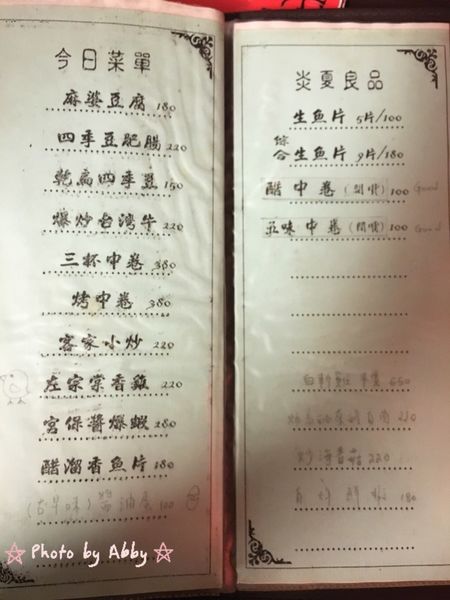 今日菜單
麻婆豆腐 180
四季豆肥腸 220
乾扁四季豆 150
爆炒台灣牛 220
三杯中卷 380
烤中卷 380
客家小炒 220
左宗棠香雞 220
宮保醬爆蝦 280
醋溜香魚片 180
(古早味) 醬油蛋 100
炎夏良品
生魚片 5片/100
綜合生魚片 9片/180
醋中卷 (開嘜) 100 Good
五味中卷 (開嘜) 100 Good
650
220
炒海香菇 220
180
☆ Photo by Abby ☆